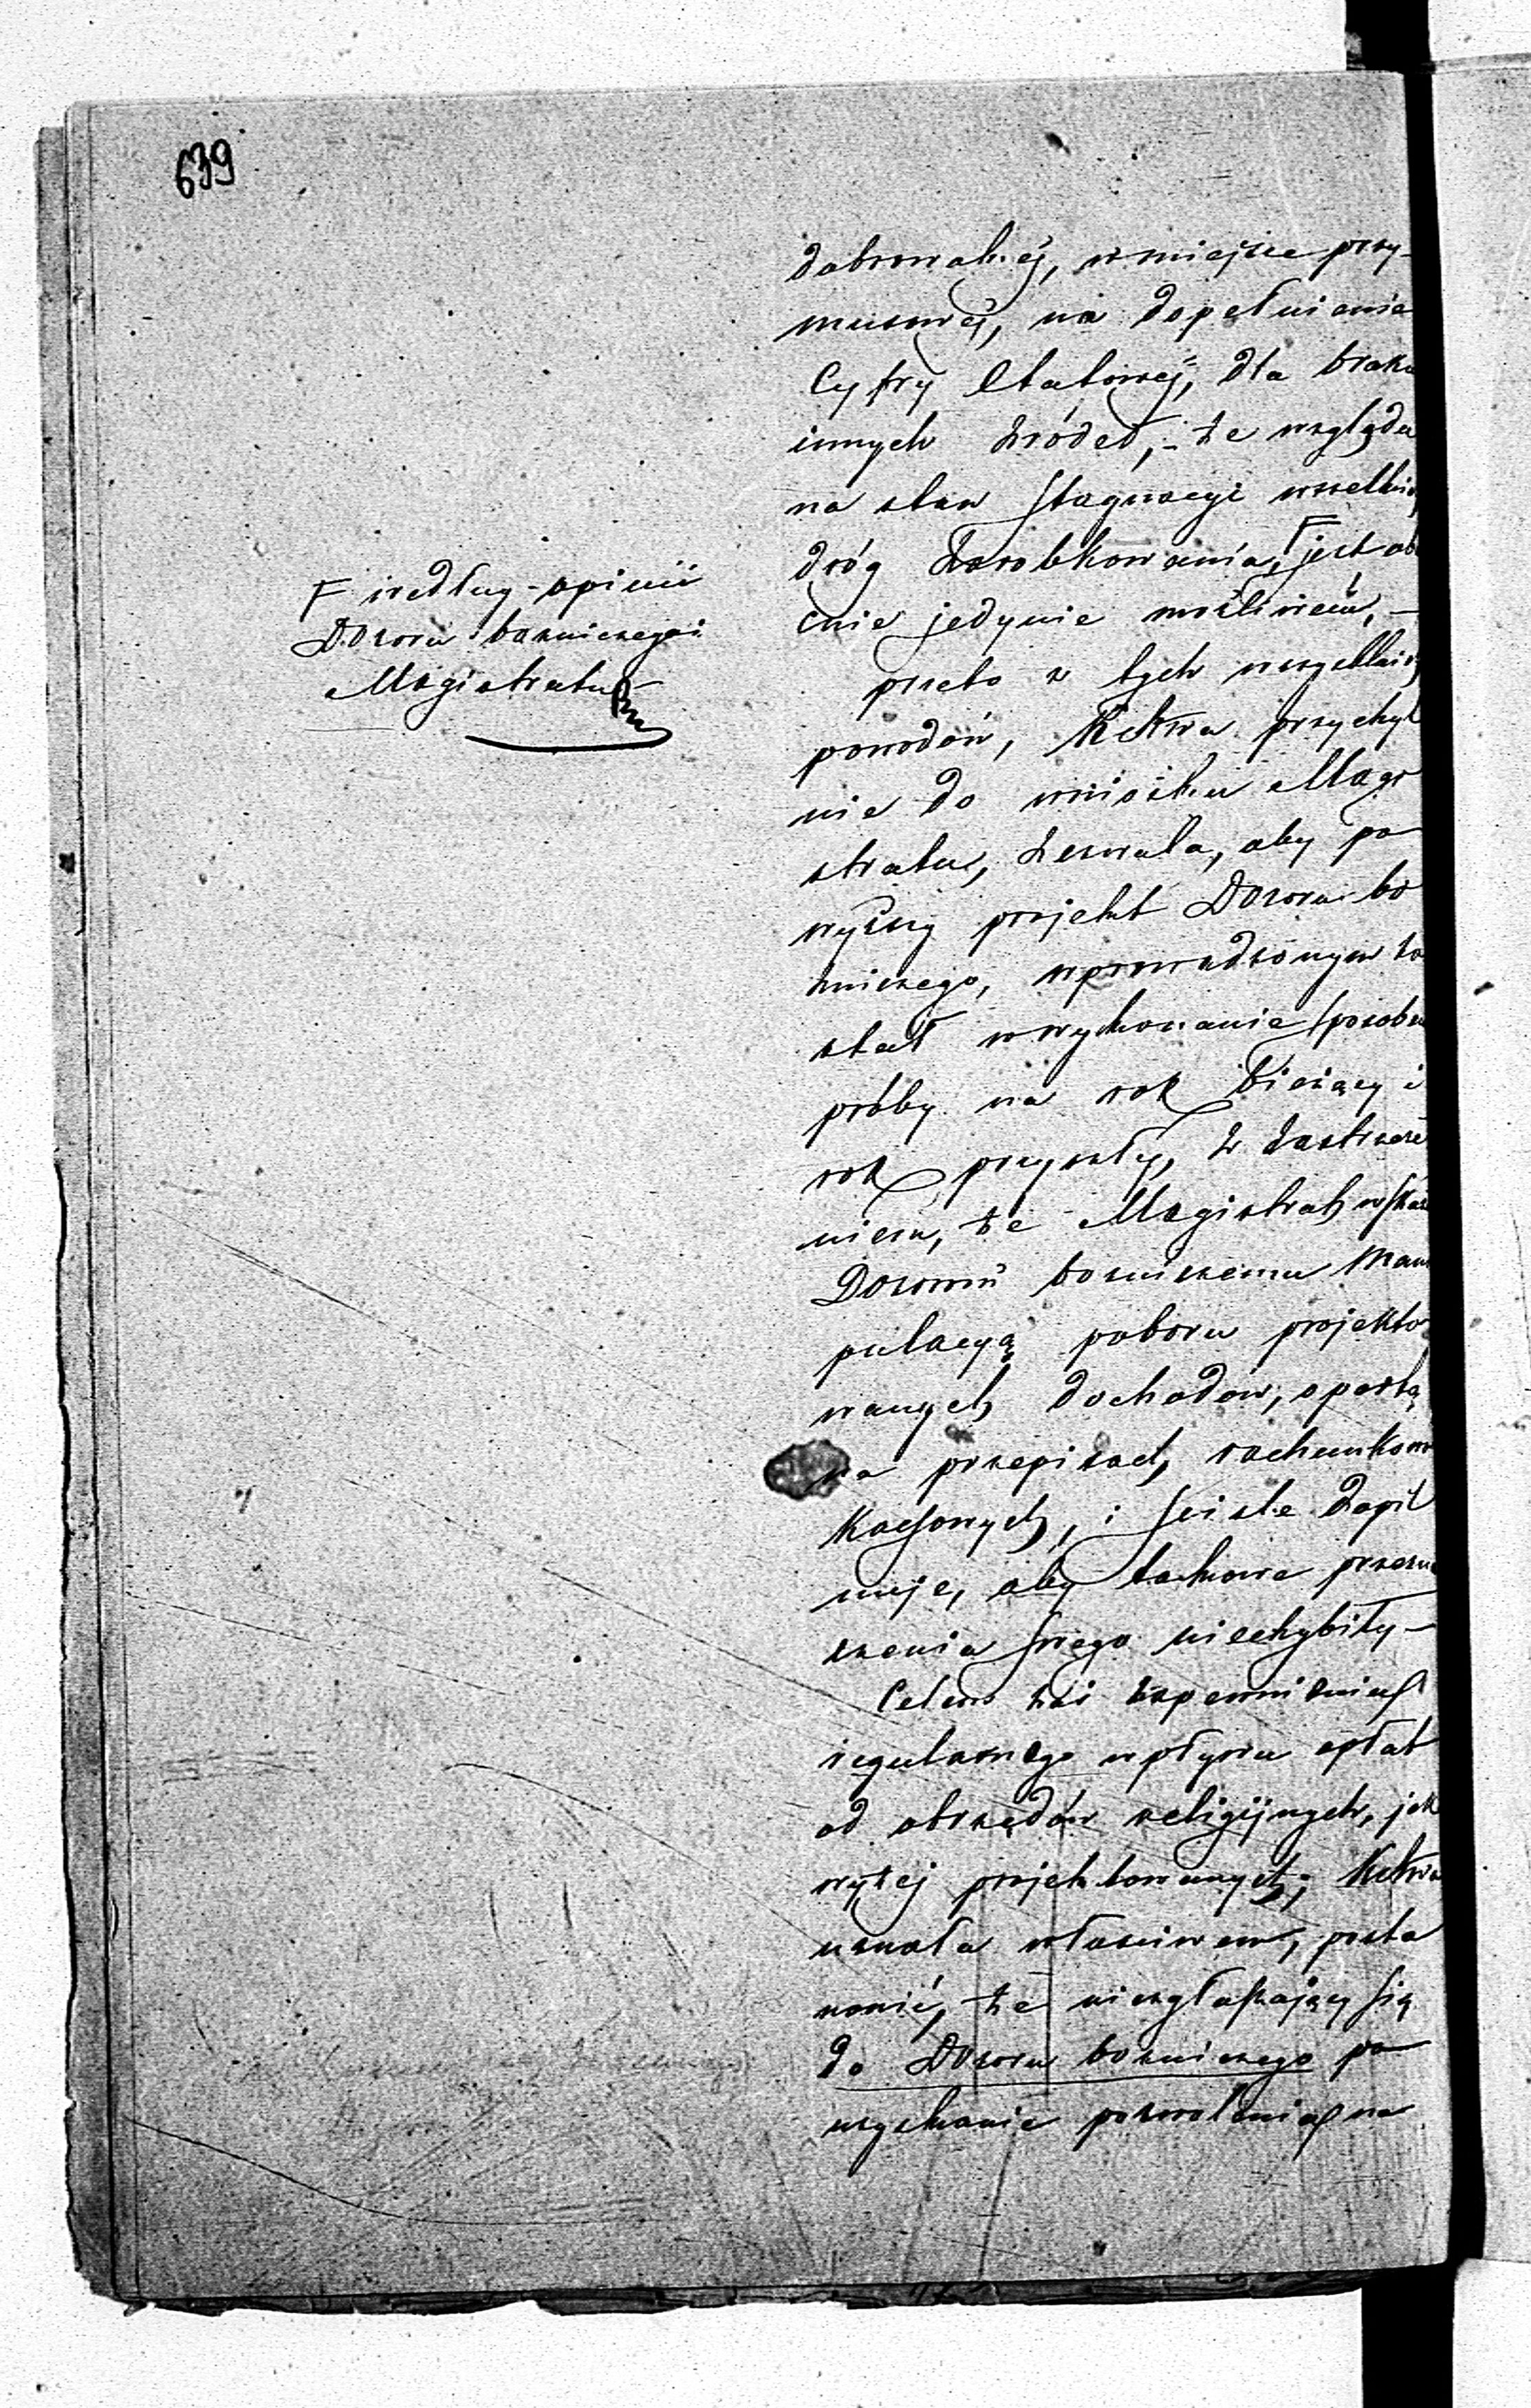 639
dobrowolnéj, w miejsce przy-
musowéj, na dopełnienie
Cyfry Etatowéj, dla braku
innych źródeł, - ze względu
na stan Stagnacyi wszelkich
dróg zarobkowania, F jest obe
cnie jedynie możliwém, -
przeto z tych wszystkich
powodów, Rektwa przychyl
nie do wniosku Magi
stratu, zezwala, aby po
wyższy projekt Dozoru bo
żniczego, wprowadzonym zo
stał w wykonanie sposobem
próby na rok bieżący i
rok przyszły, z zastrzeże
niem, że Magistrat wskaże
Dozorowi bożniczemu mani
pulacyą poboru projekto
wanych dochodów, opartą
na przepisach rachunkowo
Kassowych, i ściśle dopil
nuje, aby takowe przezna
czenia swego niechybiły -
Celem zaś zapewnienia
regularnego wpływu opłat
od obrzędów religijnych, jak
wyżej projektowanych;
uznała właściwem, posta
nowić, że niezgłaszający się
do Dozoru bożniczego po
uzyskanie pozwolenia na
F według opinii
Dozoru bożniczego i
Magistratu -